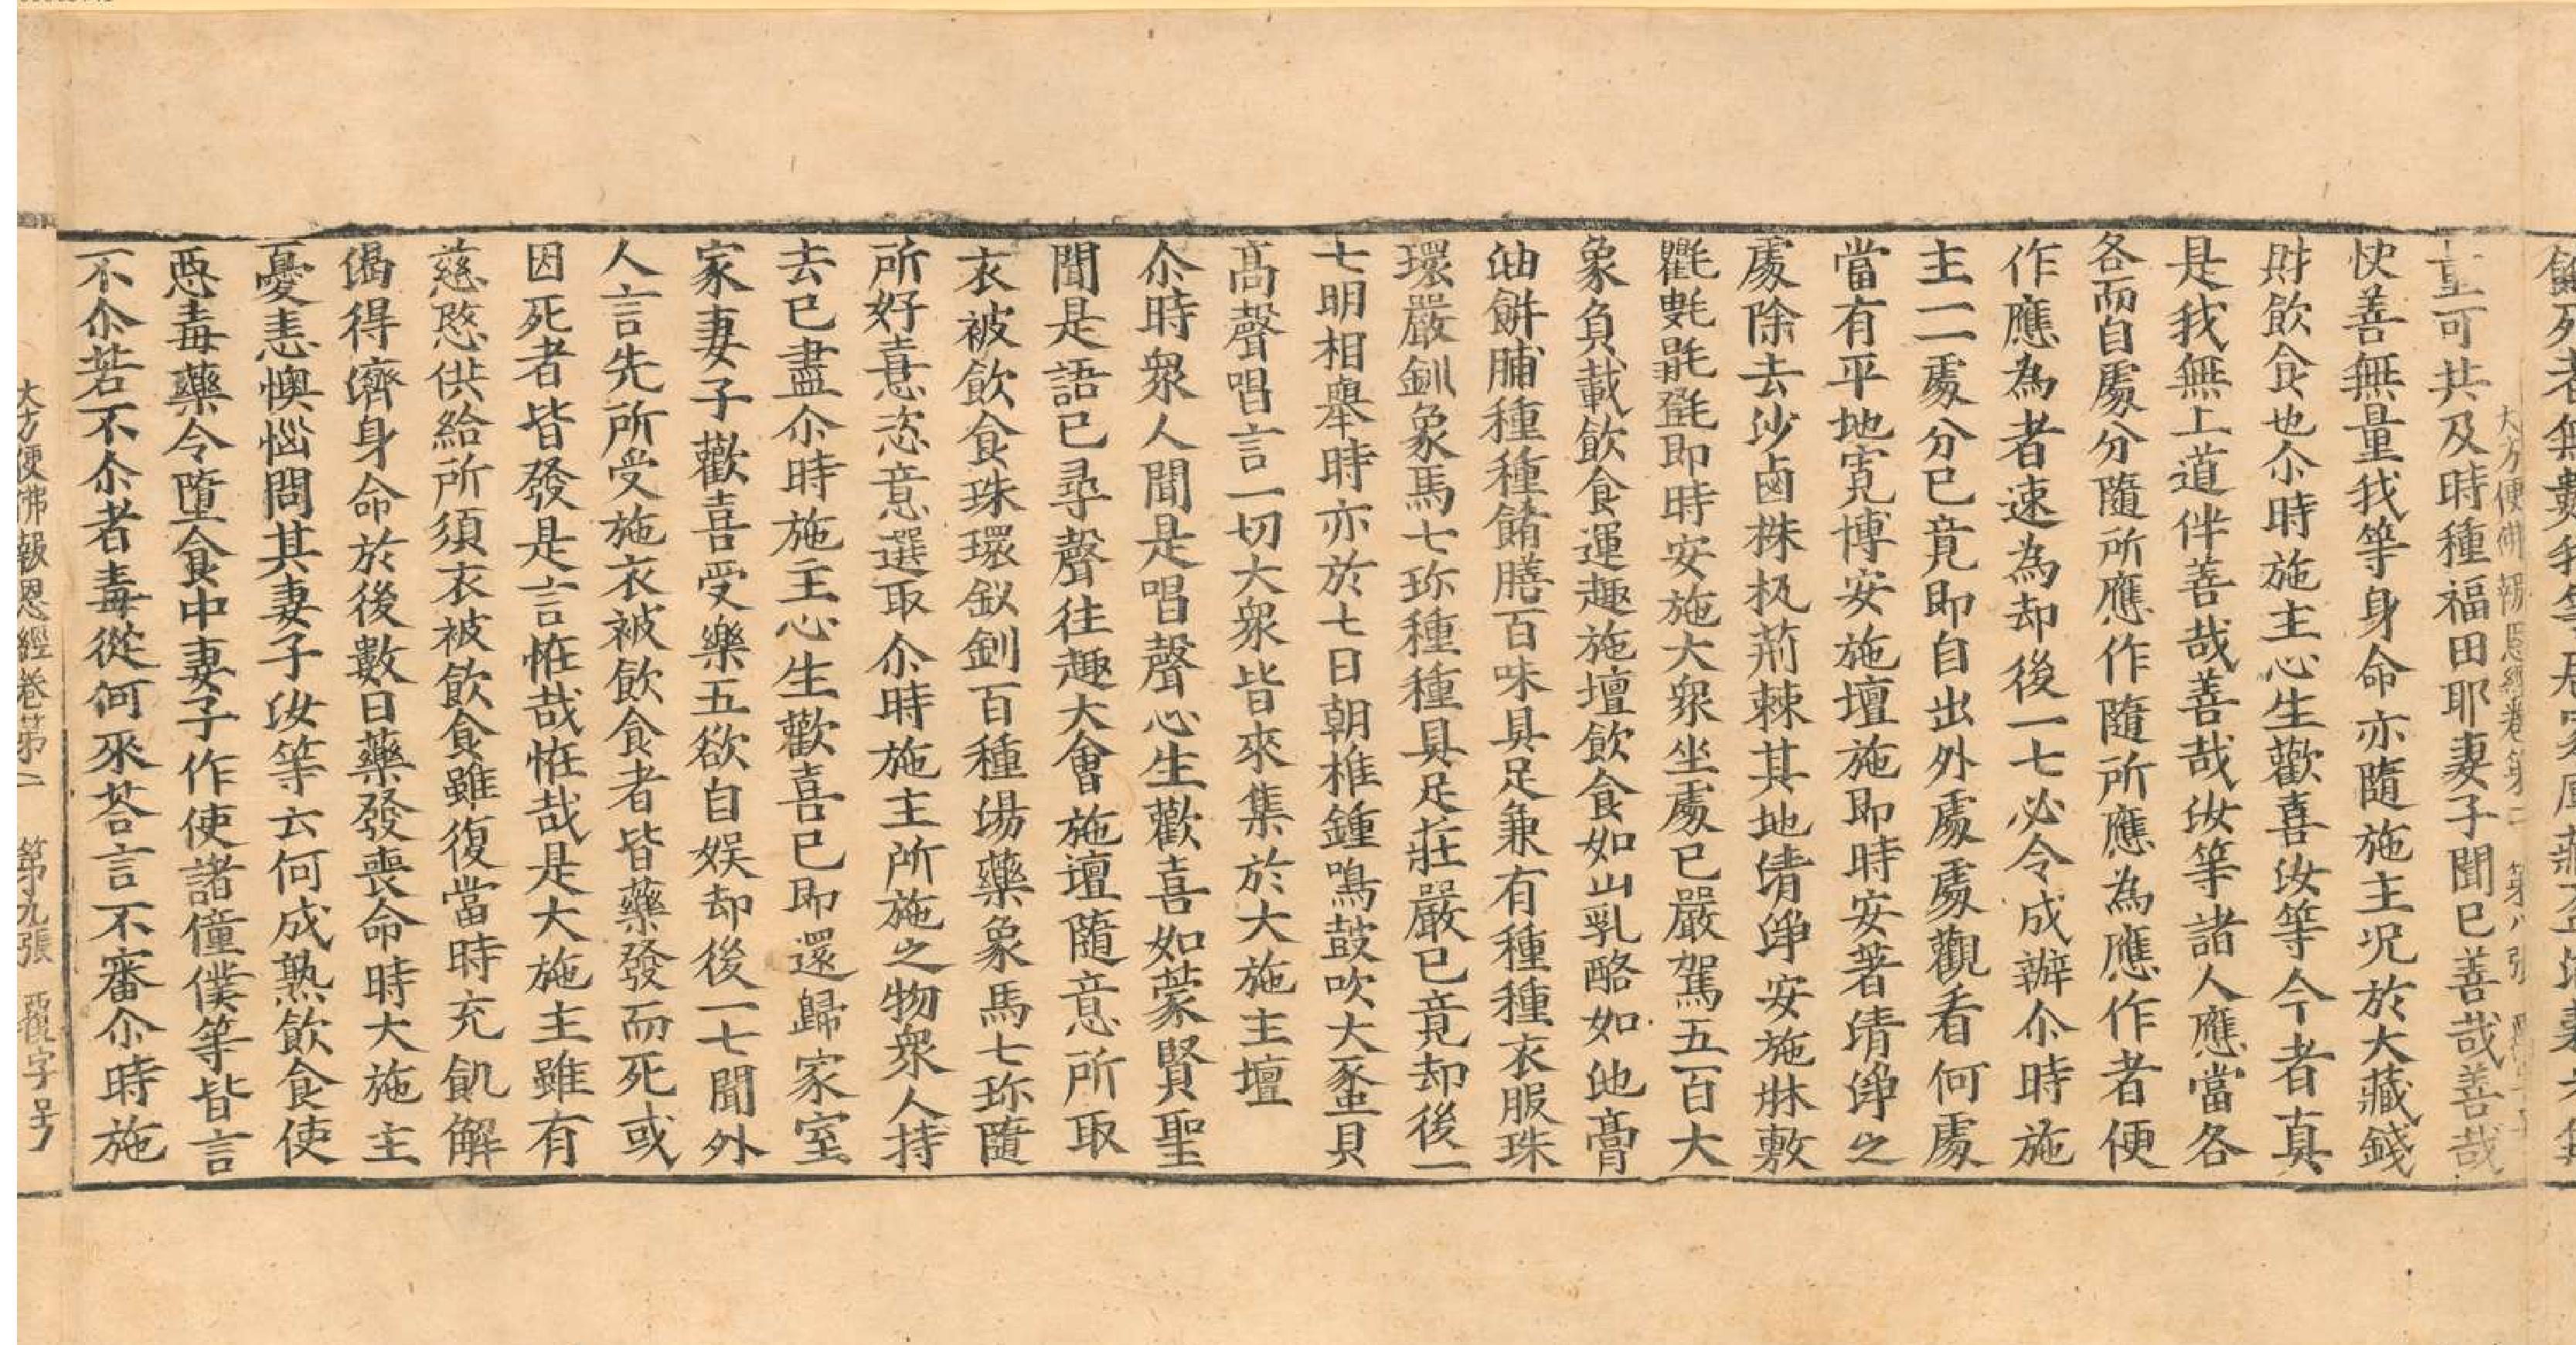 餘死者無數我等居家庫藏
大方便佛報恩經卷第二 第八張
量可共及時種福田耶妻子聞已善哉善哉
快善無量我等身命亦隨施主況於大藏錢
財飲食也尒時施主心生歡喜汝等今者真
是我無上道伴善哉善哉汝等諸人應當各
各而自處分隨所應作隨所應為應作者便
作應為者速為却後一七必令成辦尒時施
主一一處分已竟即自出外處處觀看何處
當有平地寬博安施壇施即時安著清淨之
處除去沙鹵株杌荊棘其地清淨安施牀敷
氍㲣毾㲪即時安施大眾坐處已嚴駕五百大
象負載飲食運趣施壇飲食如山乳酪如池膏
油餅脯種種餚膳百味具足兼有種種衣服珠
環嚴釧象馬七珎種種具足莊嚴已竟却後一
七明相舉時亦於七日朝椎鍾鳴鼓吹大蠡貝
高聲唱言一切大眾皆來集於大施主壇
尒時眾人聞是唱聲心生歡喜如蒙賢聖
聞是語已尋聲往趣大會施壇隨意所取
衣被飲食珠環釵釧百種湯藥象馬七珎隨
所好憙恣意選取尒時施主所施之物眾人持
去已盡尒時施主心生歡喜已即還歸家室
家妻子歡喜受樂五欲自娛却後一七聞外
人言先所受施衣被飲食者皆藥發而死或
因死者皆發是言恠哉恠哉是大施主雖有
慈愍供給所須衣被飲食雖復當時充飢解
渴得濟身命於後數日藥發喪命時大施主
憂恚懊惱問其妻子汝等云何成熟飲食使
惡毒藥令墮食中妻子作使諸僮僕等皆言
不尒若不尒者毒從何來荅言不審尒時施
大方便佛報恩經卷第二 第九張 字号